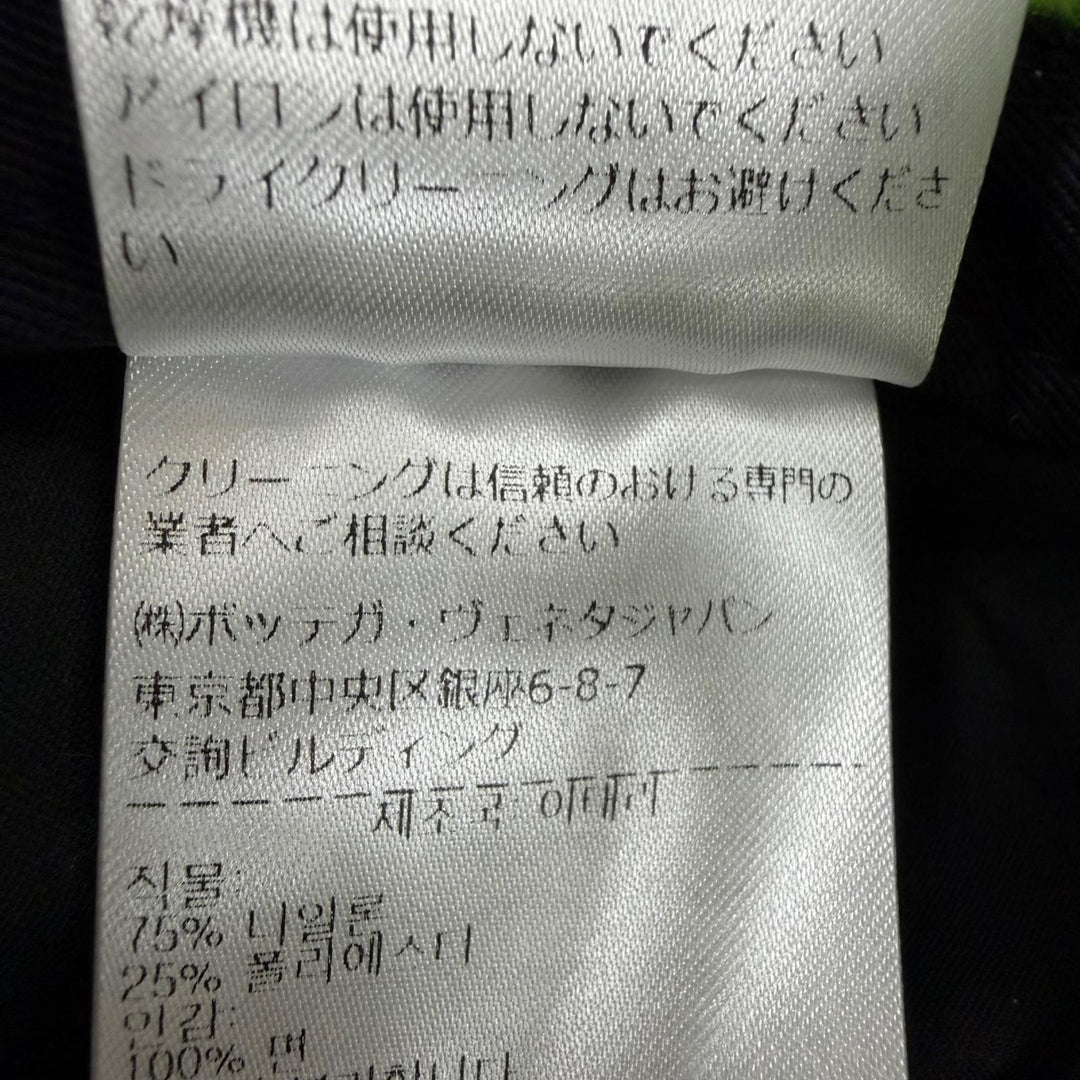 乾燥機は使用しないでください
アイロンは使用しないでください
ドライクリーニングはお避けくださ
い
クリーニングは信頼のおける専門の
業者へご相談ください
(株)ボッテガ・ヴェネタジャパン
東京都中央区銀座6-8-7
交詢ビルディング
제조국: 이태리
직물:
75% 나일론
25% 폴리에스터
안감:
100% 면